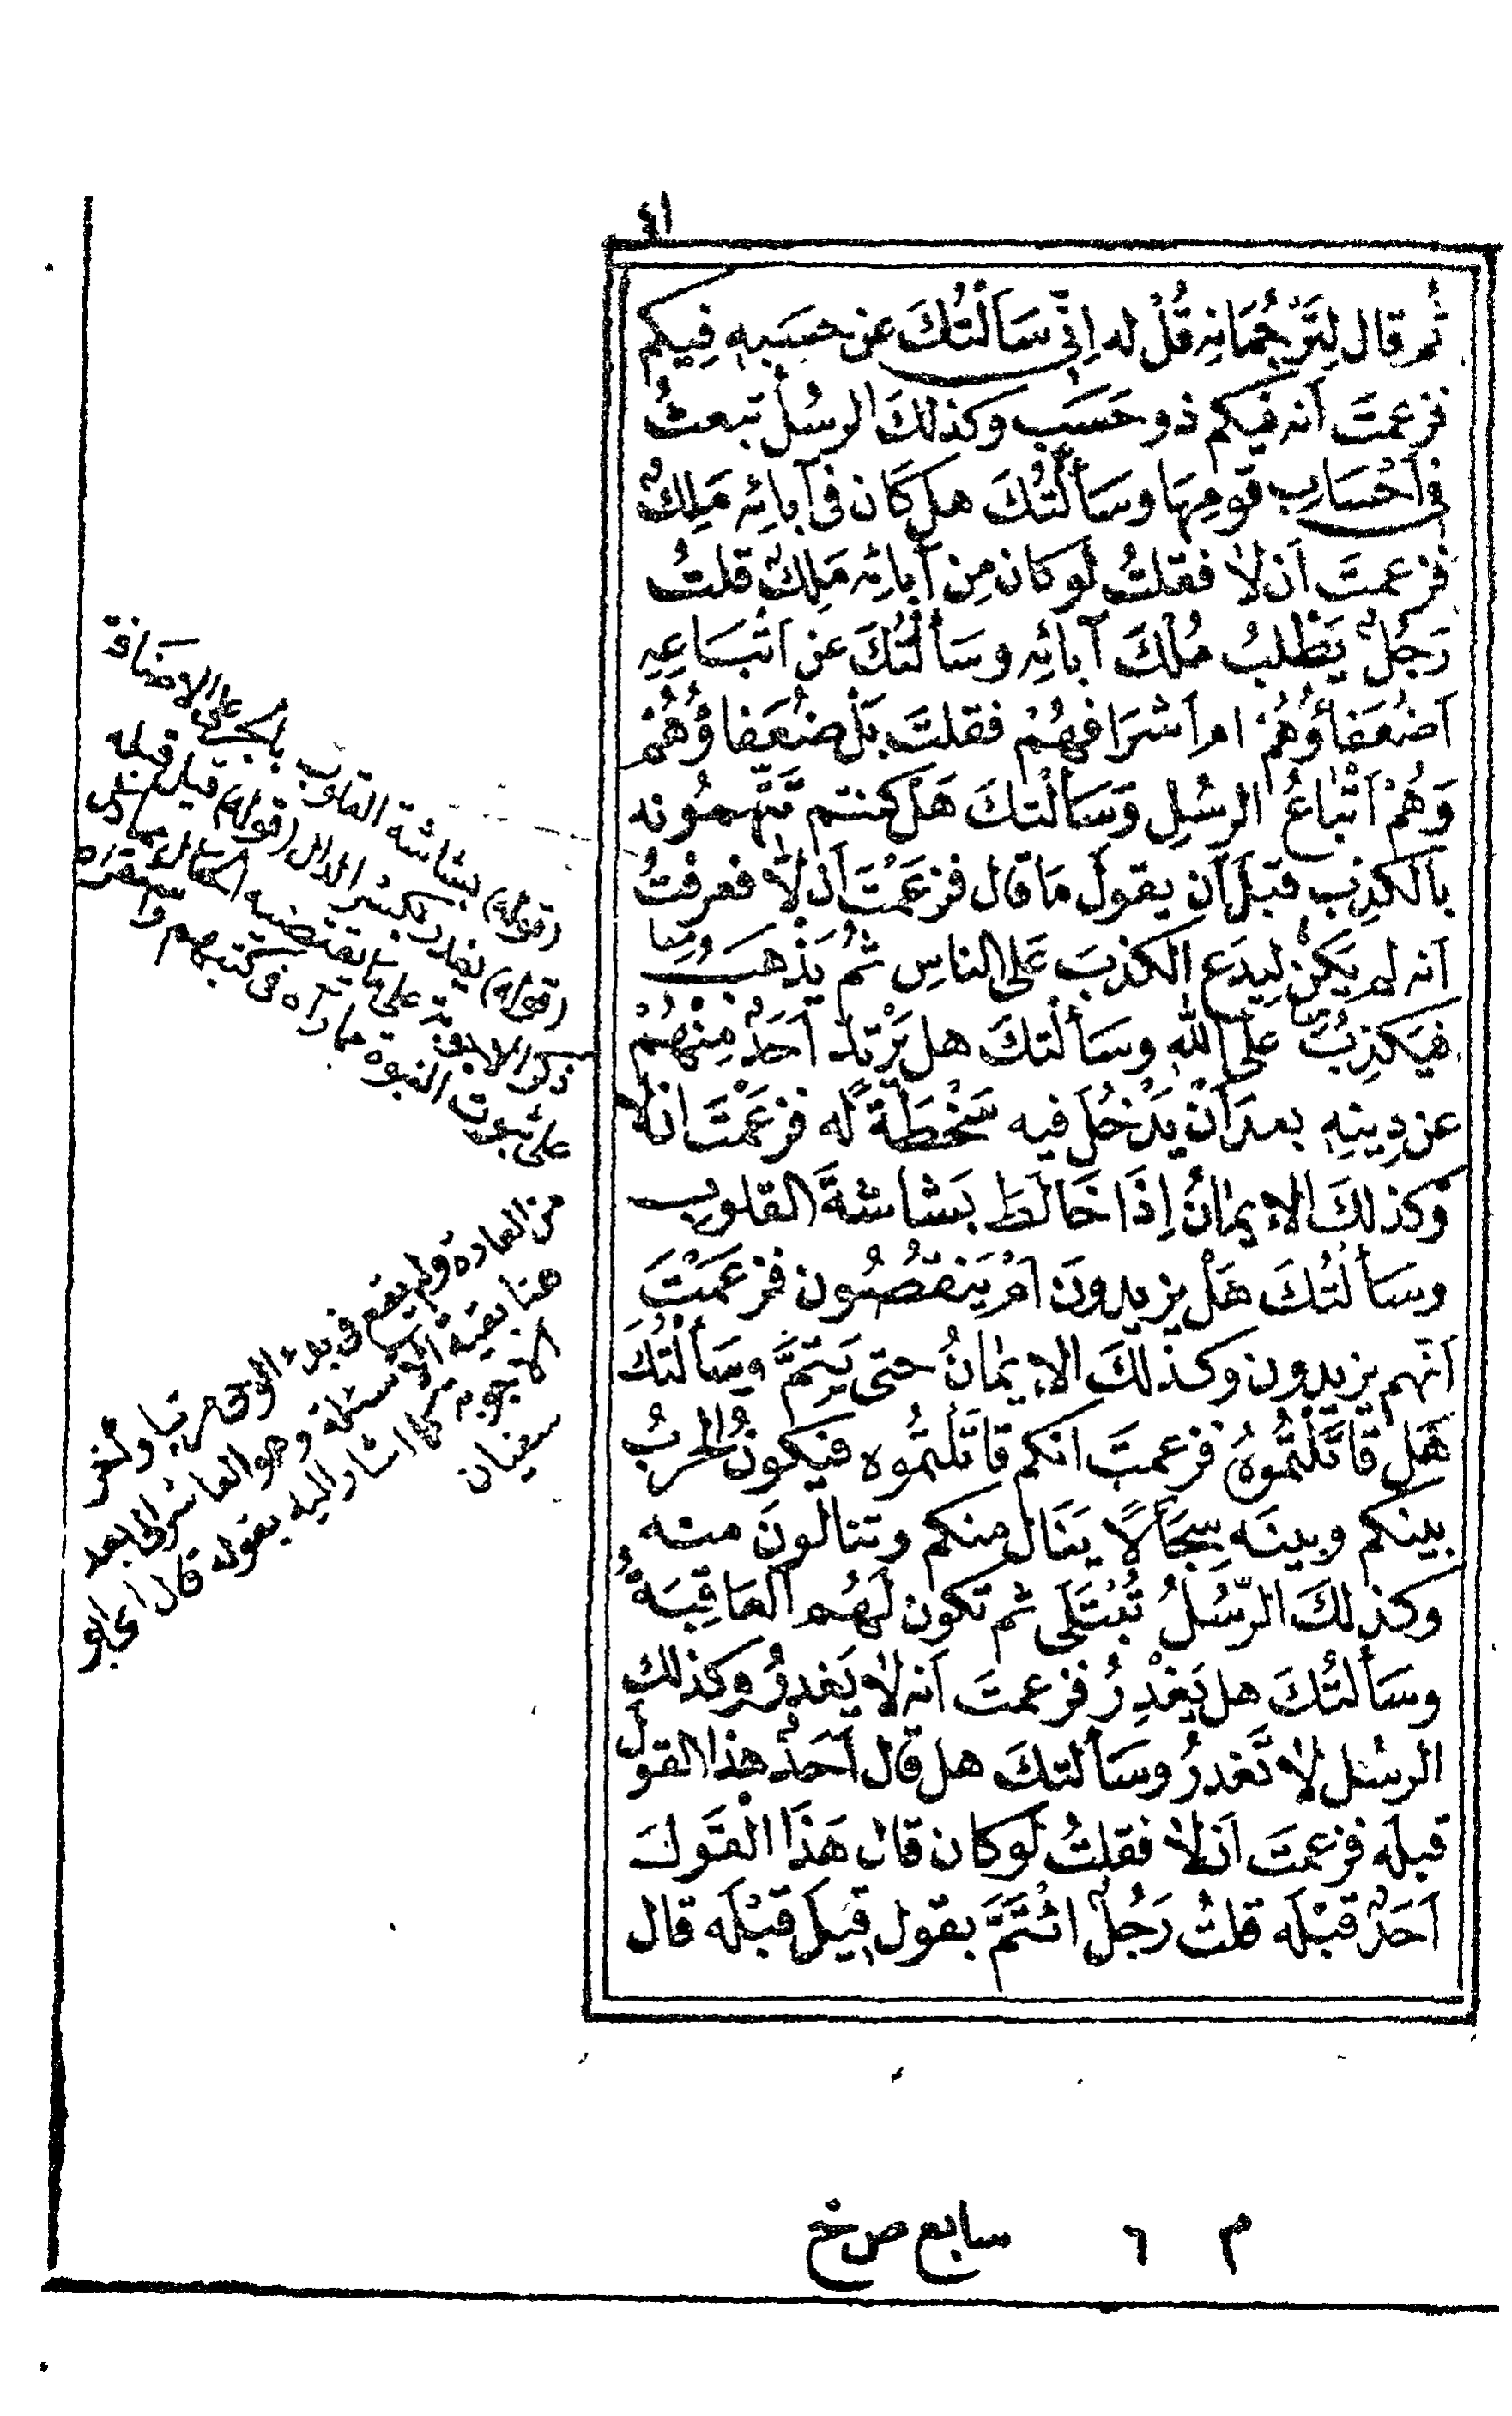 ٤١
ثم قال لِتَرْجُمَانِهِ قُلْ له اِنِّى سَاَلْتُكَ عن حَسَبِهِ فِيكم
فزعمتَ اَنه فيكم ذو حَسَبٍ وكذلكَ الرسُلُ تبعثُ
فى اَحْسَابِ قَومِهَا وسَأَلْتُكَ هل كَان فى آبائِه مَلِكٌ
فزعمتَ اَن لا فقلتُ لَو كان مِن آبائِه مَلِكٌ قلتُ
رَجُلٌ يَطْلبُ مُلْكَ آبائِه وسَأَلْتُكَ عن اَتْبَاعِهِ
اَضُعَفاؤُهُمْ ام اَشرَافهُمْ فقلتَ بَلْ ضُعَفاؤُهُمْ
وَهُمْ اَتْباعُ الرسُلِ وَسَأَلْتكَ هَل كنتم تَتَّهِمُونه
بالكَذِبِ قبلَ اَن يقولَ مَا قال فزعَمْتَ اَن لاَ فعرفتُ
اَنه لم يَكنْ لِيَدَعَ الكذبَ عَلى الناسِ ثُمَّ يَذْهَبَ
فيَكذِبَ علَى اللهِ وسَأَلْتكَ هل يَرْتَدُّ اَحَدٌ مِنْهُمْ
عن دِينِهِ بعدَ اَنْ يَدْخُلَ فيه سَخْطَةً له فزعَمْتَ ان لا
وَكذلكَ الايمانُ اِذَا خَالَطَ بَشاشةَ القلوبِ
وسَأَلْتُكَ هَلْ يزيدونَ اَمْ يَنقُصُون فزعَمْتَ
اَنّهم يزيدون وكذلكَ الايمانُ حتى يَتِمَّ وسَأَلْتُكَ
هَلْ قاتَلْتُمُوهُ فزعمتَ انكم قاتَلْتُموه فتكونُ الحَربُ
بينكم وبينَه سِجَالًا يَنَال منكم وتنالونَ منه
وكذلكَ الرّسُلُ تُبْتَلَى ثم تكون لَهُم العَاقِبَةُ
وسَأَلْتُكَ هل يَغْدِرُ فزعمتَ اَنه لا يَغدِرُ وكذلك
الرسُل لا تَغدرُ وسَأَلتكَ هل قال اَحَدٌ هذا القولَ
قبلَه فزعمتَ اَن لا فقلتُ لَو كان قال هَذَا القَولَ
اَحَدٌ قَبْلَه قلتُ رَجُلٌ ائْتَمَّ بقول قِيلَ قَبْلَه قال
(قوله) بشاشة القلوب بالجر على الاضافة
(قوله) يغدر بكسر الدال (قوله) قيل قبله
ذكر الاجوبة على ما يقتضيه الحال
على ثبوت النبوة مما رآه فى كتبهم واستقراه
من العادة ولم يقع فى بدء الوحى مرتبا واخر
هنا بقية الاسئلة وهو العاشر الى بعد
الاجوبة كما اشار اليه بقوله قال اى ابو
سفيان
م ٦ سابع ص خ